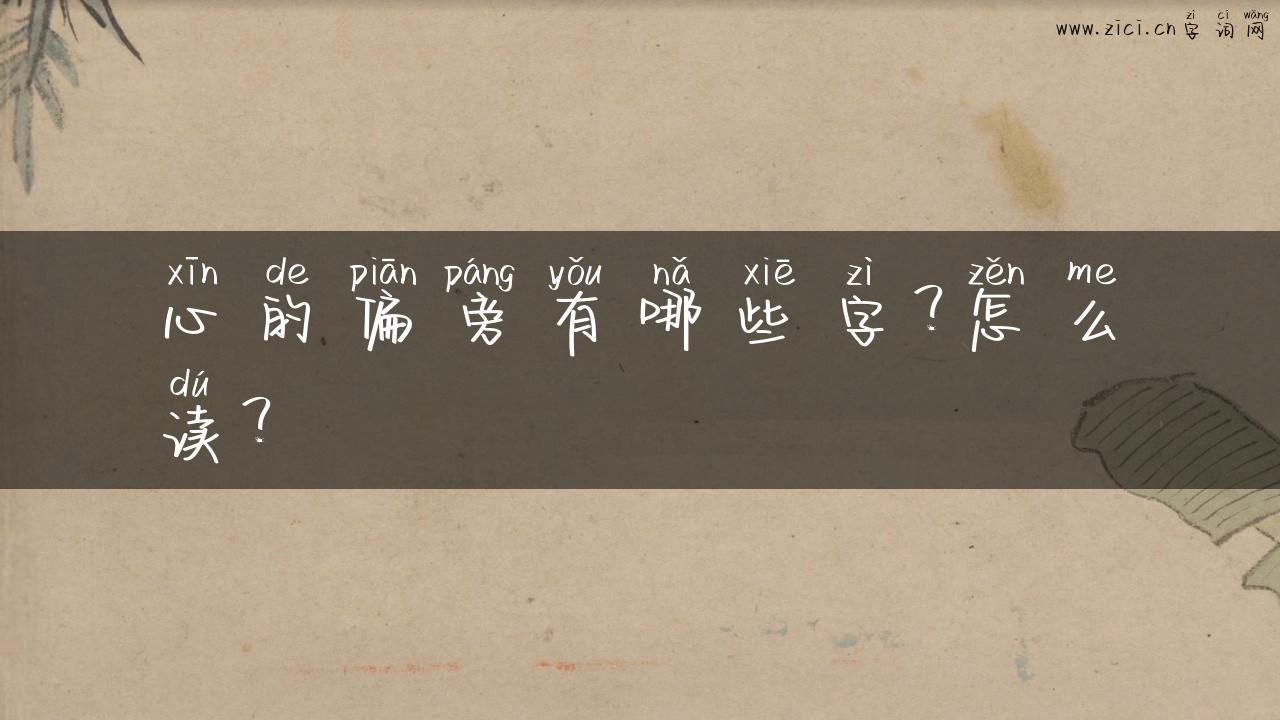 zì cí wǎng
www.zici.cn 字 词 网
xīn de piān páng yǒu nǎ xiē zì zěn me
心 的 偏 旁 有 哪 些 字 ? 怎 么
dú
读 ?